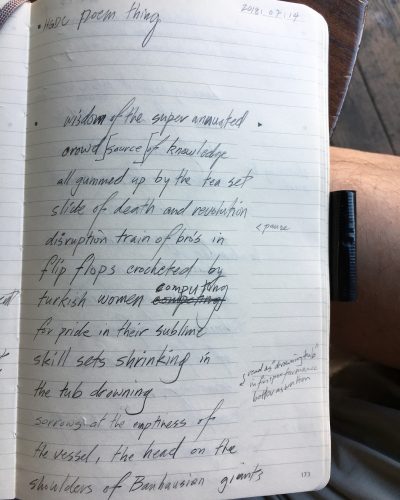 • HGDC poem thing
2018.07.14
• wisdom of the super annuated •
crowd [source] of knowledge
all gummed up by the tea set
slide of death and revolution
< pause
disruption train of bro's in
flip flops crocheted by
computing
turkish women competing
for pride in their sublime
skill sets shrinking in
{ read as "drowning tub"
in first performance
the tub drowning
better as written
sorrows at the emptiness of
the vessel, the head on the
shoulders of Bauhausian giants
177